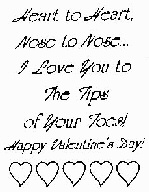 Heart to Heart,
Nose to Nose...
I Love You to
The Tips
of Your Toes!
Happy Valentine's Day!